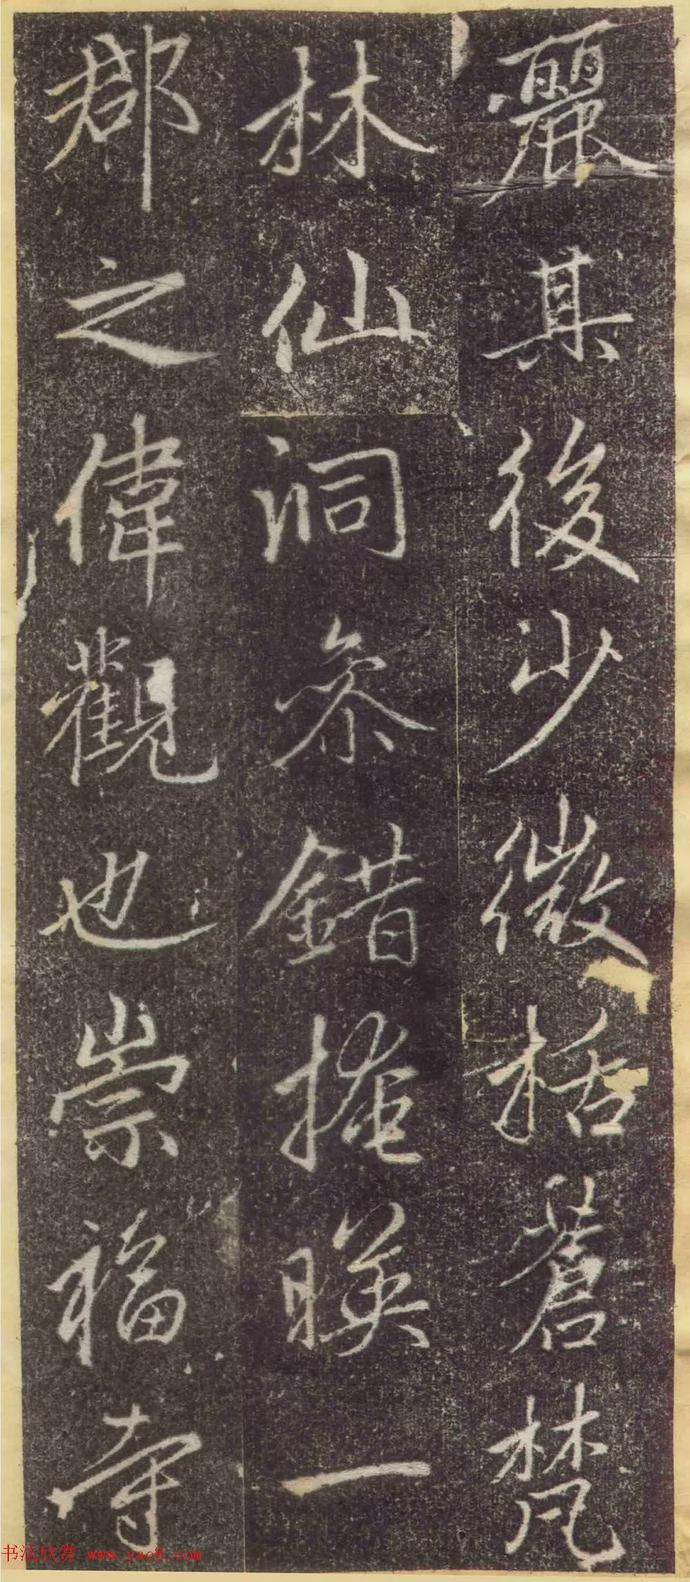 麗其後少微括蒼梵
林仙洞条錯掩暎一
郡之偉觀也崇福寺
书法欣赏 www.yac8.com